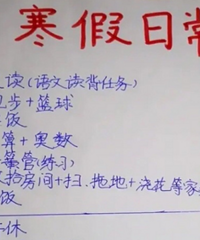 寒假日常
读(语文读背任务)
跑步+篮球
饭
算+奥数
(练习)
拾房间+扫、拖地+浇花等家
饭
休